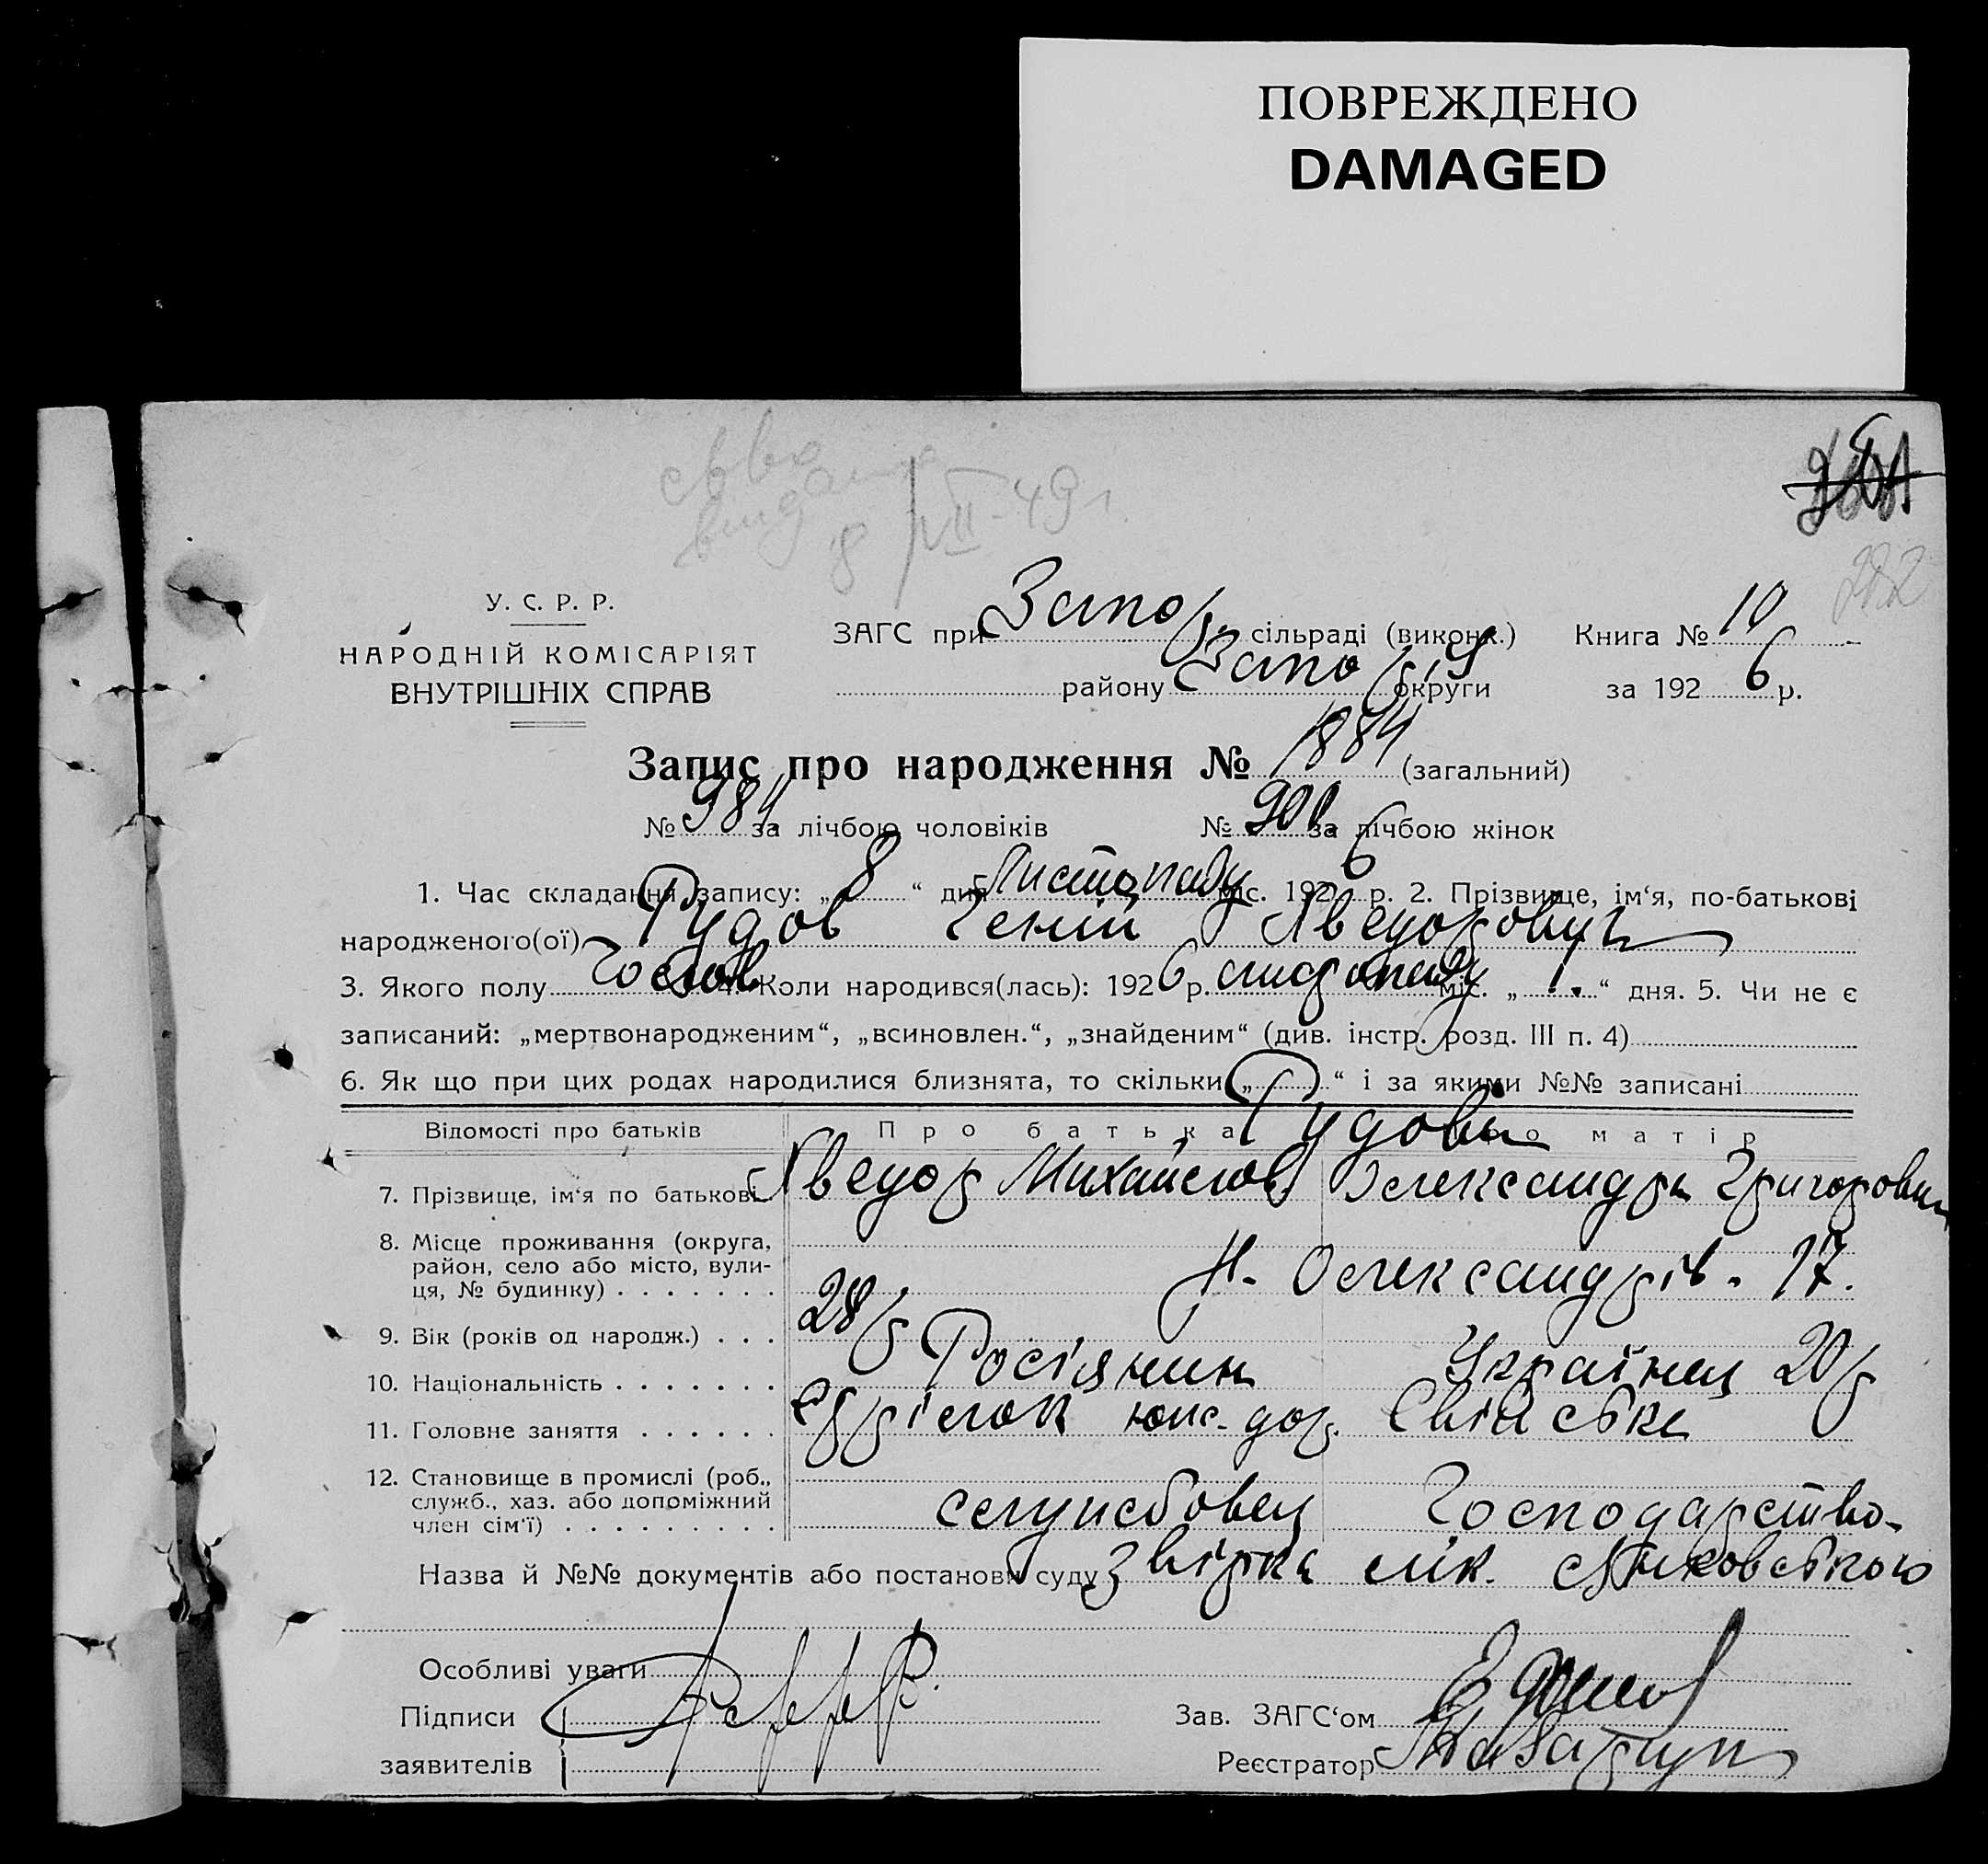 ПОВРЕЖДЕНО
DAMAGED
видана 8/VII-49 г.
282
У. С. Р. Р.
НАРОДНІЙ КОМІСАРІЯТ
ВНУТРІШНІХ СПРАВ
ЗАГС при Запор. сільраді (виконк.) Книга № 10
району Запор округи за 1926 р.
Запис про народження № 1884 (загальний)
№ 984 за лічбою чоловіків № 900 за лічбою жінок
1. Час складання запису: „ 8 “ дня Листопаду міс. 1926 р. 2. Прізвище, ім‘я, по-батькові
народженого(ої) Рудов Геній Хведорович
3. Якого полу чолов 4. Коли народився(лась): 1926 р. листопаду міс. „ 1. “ дня. 5. Чи не є
записаний: „мертвонародженим“, „всиновлен.“, „знайденим“ (див. інстр. розд. III п. 4)
6. Як що при цих родах народилися близнята, то скільки „ “ і за якими №№ записані
Відомості про батьків Про батька Про матір
Рудови
7. Прізвище, ім‘я по батькові Хведор Михайлов Олександра Григоровна
8. Місце проживання (округа,
район, село або місто, вули-
ця, № будинку) Н. Олександрів. 17.
9. Вік (років од народж.) 28 р 20 р
10. Національність Росіянин Українка
11. Головне заняття Стрілок Хатське
12. Становище в промислі (роб.,
служб., хаз. або допоміжний
член сім‘ї) службовец Господарство
Назва й №№ документів або постанови суду Звірка лік.
Особливі уваги
Підписи
заявителів
Зав. ЗАГС‘ом
Реєстратор